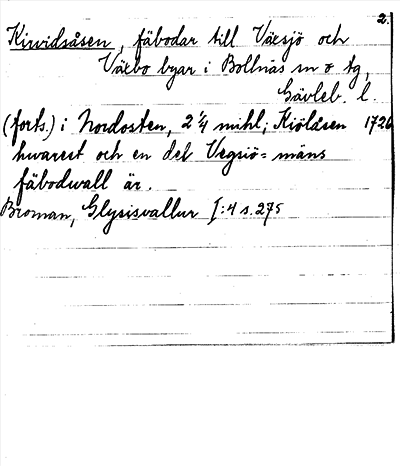 2.
Kirvidsåsen, fäbodar till Växsjö och
Växbo byar i Bollnäs sn o tg,
Gävleb. l.
(forts.) i Nordosten, 2 1/4 mihl; Kiölåsen 1726
hwarest och en del Vegsiö=mäns
fäbodwall är.
Broman, Glysisvallur I:4 s. 275